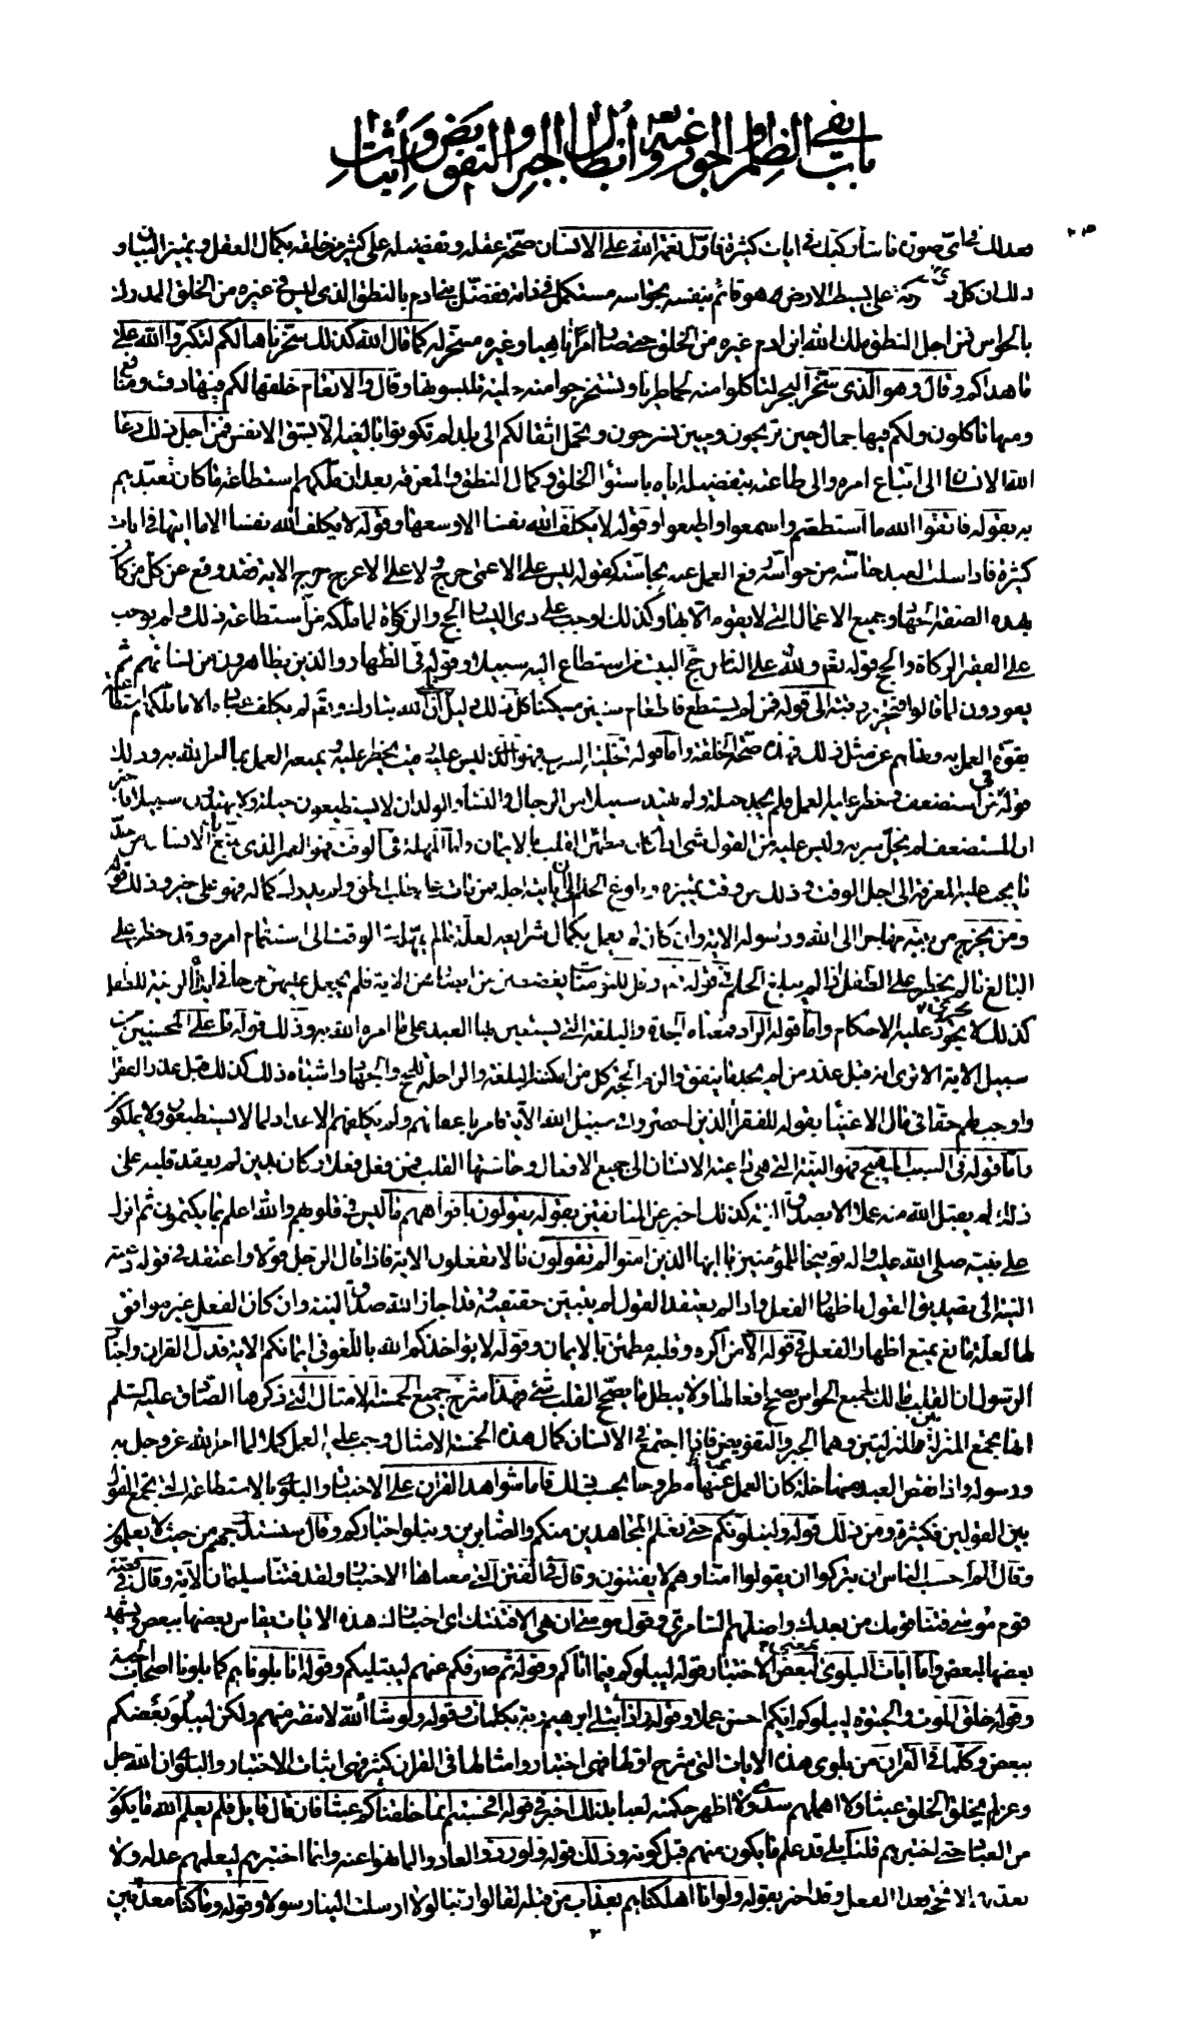 باب نفي الظلم والجور عنه تعالى وابطال الجبر والتفويض واثبات
فعدلك في اي صورة ما شاء ركبك في ايات كثيرة فاول نعمة الله على الانسان صحة عقله وتفضيله على كثير من خلقه بكمال العقل وتميز البيان و
ذلك ان كل ذي على بسيط الارض هو قائم بنفسه بحواسه مستكمل في ذاته ففضل بني ادم بالنطق الذي ليس في غيره من الخلق المدرك
بالحواس فمن اجل النطق ملك الله ابن ادم غيره من الخلق حتى صار امرا ناهيا وغيره مسخر له كما قال الله كذلك سخرناها لكم لتكبروا الله على
ما هداكم وقال وهو الذي سخر البحر لتاكلوا منه لحما طريا وتستخرجوا منه حلية تلبسونها وقال والانعام خلقها لكم فيها دفء ومنافع
ومنها تاكلون ولكم فيها جمال حين تريحون وحين تسرحون وتحمل اثقالكم الى بلد لم تكونوا بالغيه الا بشق الانفس فمن اجل ذلك دعا
الله الانسان الى اتباع امره والى طاعته بتفضيله اياه باستواء الخلق وكمال النطق والمعرفة بعد ان ملكهم استطاعة ما كان تعبدهم
به بقوله فاتقوا الله ما استطعتم واسمعوا واطيعوا وقوله لا يكلف الله نفسا الا وسعها وقوله لا يكلف الله نفسا الا ما اتيها في ايات
كثيرة فاذا سلب العبد حاسة من حواسه رفع العمل عنه بحاسته كقوله ليس على الاعمى حرج ولا على الاعرج حرج الاية فقد رفع عن كل من كان
بهذه الصفة الجهاد وجميع الاعمال التي لا يقوم الا بها وكذلك اوجب على ذي اليسار الحج والزكاة لما ملكه من استطاعة ذلك ولم يوجب
على الفقير الزكاة والحج قوله تعم ولله على الناس حج البيت من استطاع اليه سبيلا وقوله في الظهار والذين يظاهرون من نسائهم ثم
يعودون لما قالوا فتحرير رقبة الى قوله فمن لم يستطع فاطعام ستين مسكينا كل ذلك دليل ان الله تبارك وتعم لم يكلف عباده الا ما ملكهم استطاعته
بقوة العمل به ونهاهم عن مثل ذلك فهذه صحة الخلقة واما قوله تخلية السرب فهو الذي ليس عليه رقيب يحظر عليه ويمنعه العمل بما امر الله به وذلك
قوله فيمن استضعف وحظر عليه العمل فلم يجد حيلة ولم يهتد سبيلا من الرجال والنساء والولدان لا يستطيعون حيلة ولا يهتدون سبيلا فاخبر
ان المستضعف لم يخل سربه وليس عليه من القول شيء اذا كان مطمئن القلب بالايمان واما المهلة في الوقت فهو العمر الذي يمتع الانسان من حد
ما يجب عليه المعرفة الى اجل الوقت وذلك من وقت تميزه وبلوغ الحلم الى ان ياتيه اجله فمن مات على طلب الحق ولم يدرك كماله فهو على خير وذلك قوله
ومن يخرج من بيته مهاجرا الى الله ورسوله الاية وان كان لم يعمل بكمال شرايعه لعلة ما لم يمهله في الوقت الى استتمام امره وقد حظر على
البالغ ما لم يحظر على الطفل اذا لم يبلغ الحلم في قوله تعم وقل للمؤمنات يغضضن من ابصارهن الاية فلم يجعل عليهن حرجا في ابداء الزينة للطفل
كذلك لا يجري عليه الاحكام واما قوله الزاد فمعناه الجدة والبلغة التي يستعين بها العبد على ما امره الله به وذلك قوله ما على المحسنين من
سبيل الاية الا ترى انه قبل عذر من لم يجد ما ينفق والزم الحجة كل من امكنته البلغة والراحلة للحج والجهاد واشباه ذلك كذلك قبل عذر الفقراء
واوجب لهم حقا في مال الاغنياء بقوله للفقراء الذين احصروا في سبيل الله الاية فامر باعفائهم ولم يكلفهم الاعداد لما لا يستطيعون ولا يملكون
واما قوله في السبب المهيج فهو النية التي هي داعية الانسان الى جميع الافعال وحاستها القلب فمن فعل فعلا وكان بدين لم يعقد قلبه على
ذلك لم يقبل الله منه عملا الا بصدق النية كذلك اخبر عن المنافقين بقوله يقولون بافواههم ما ليس في قلوبهم والله اعلم بما يكتمون ثم انزل
على نبيه صلى الله عليه واله توبيخا للمؤمنين يا ايها الذين امنوا لم تقولون ما لا تفعلون الاية فاذا قال الرجل قولا واعتقد في قوله دعته
النية الى تصديق القول باظهار الفعل واذا لم يعتقد القول لم يتبين حقيقته وقد اجاز الله صدق النية وان كان الفعل غير موافق
لها لعلة مانع يمنع اظهار الفعل في قوله الا من اكره وقلبه مطمئن بالايمان وقوله لا يؤاخذكم الله باللغو في ايمانكم الاية فدل القران واخبار
الرسول ان القلب مالك لجميع الحواس يصحح افعالها ولا يبطل ما يصحح القلب شيء فهذا شرح جميع الخمسة الامثال التي ذكرها الصادق عليه السلم
انها تجمع المنزلة بين المنزلتين وهما الجبر والتفويض فاذا اجتمع في الانسان كمال هذه الخمسة الامثال وجب عليه العمل كملا لما امر الله عز وجل به
ورسوله واذا نقص العبد منها خلة كان العمل عنها مطروحا بحسب ذلك فاما شواهد القران على الاختبار والبلوى بالاستطاعة التي تجمع القول
بين القولين فكثيرة ومن ذلك قوله ولنبلونكم حتى نعلم المجاهدين منكم والصابرين ونبلوا اخباركم وقال سنستدرجهم من حيث لا يعلمون
وقال الم احسب الناس ان يتركوا ان يقولوا امنا وهم لا يفتنون وقال في الفتن التي معناها الاختبار ولقد فتنا سليمان الاية وقال في قصة
قوم موسى فتنا قومك من بعدك واضلهم السامري وقول موسى ان هي الا فتنتك اي اختبارك هذه الايات يقاس بعضها ببعض ويشهد
بعضها لبعض واما ايات البلوى بمعنى الاختبار قوله ليبلوكم فيما اتاكم وقوله ثم صرفكم عنهم ليبتليكم وقوله انا بلوناهم كما بلونا اصحاب الجنة
وقوله خلق الموت والحيوة ليبلوكم ايكم احسن عملا وقوله واذ ابتلى ابرهيم ربه بكلمات وقوله ولو شاء الله لانتصر منهم ولكن ليبلو بعضكم
ببعض وكلما في القران من بلوى هذه الايات التي شرح اولها فهي اختبار وامثالها في القران كثير فهي اثبات الاختبار والبلوى ان الله جل
وعز لم يخلق الخلق عبثا ولا اهملهم سدى ولا اظهر حكمته لعبا بذلك اخبر في قوله افحسبتم انما خلقناكم عبثا فان قال قايل فلم يعلم الله ما يكون
من العباد حتى اختبرهم قلنا بلى قد علم ما يكون منهم قبل كونه وذلك قوله ولو ردوا لعادوا لما نهوا عنه وانما اختبرهم ليعلمهم عدله ولا
يعذبهم الا بحجة بعد الفعل وقد اخبر بقوله ولو انا اهلكناهم بعذاب من قبله لقالوا ربنا لولا ارسلت الينا رسولا وقوله وما كنا معذبين